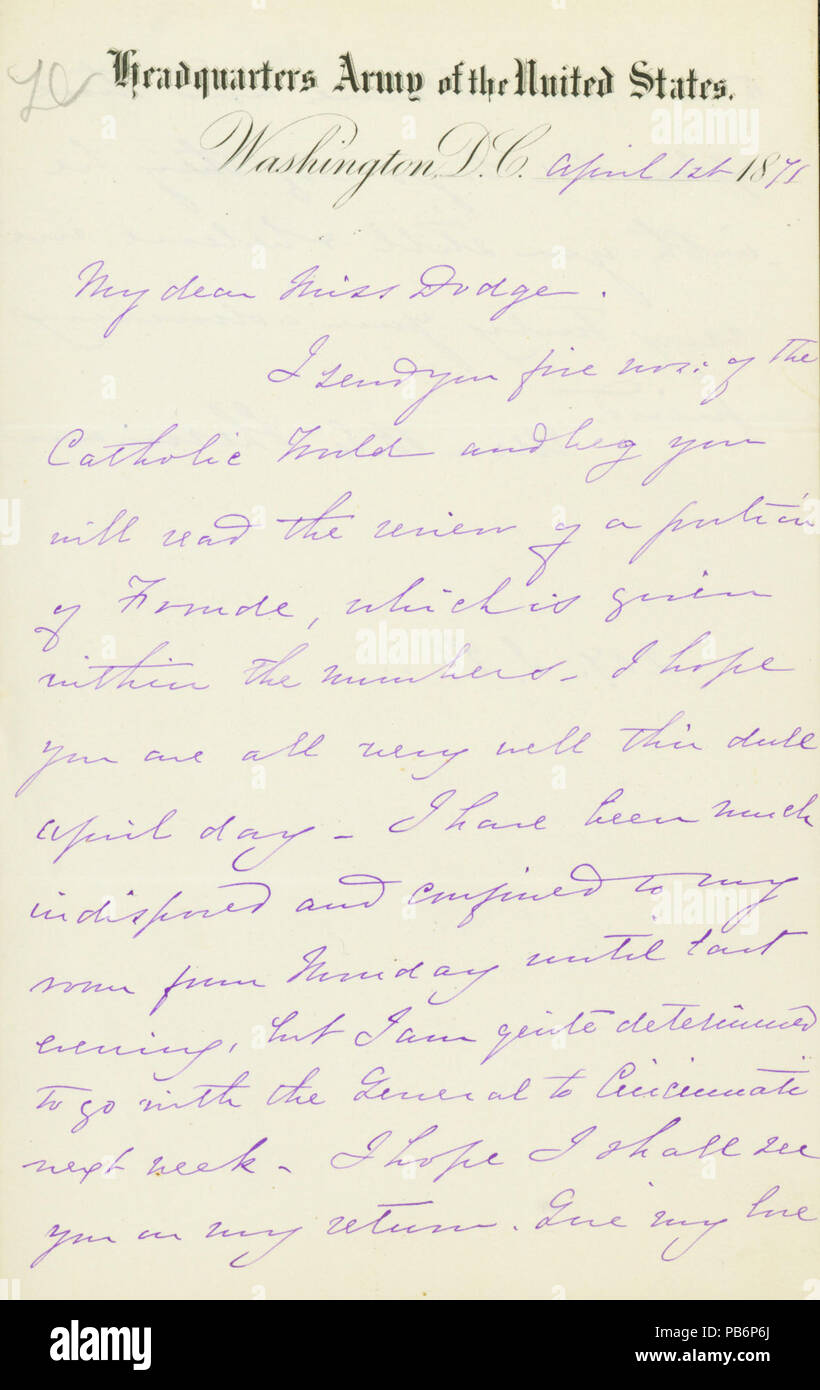 Headquarters Army of the United States.
Washington, D.C. April 1st 1871
My dear Miss Dodge.
I send you five nos: of the
Catholic World and beg you
will read the review of a portion
of Froude, which is given
within the numbers - I hope
you are all very well this dull
April day - I have been much
indisposed and confined to my
room from Monday until last
evening, but I am quite determined
to go with the General to Cincinnati
next week - I hope I shall see
you on my return. Give my love
alamy
Image ID: PB6P6J
www.alamy.com